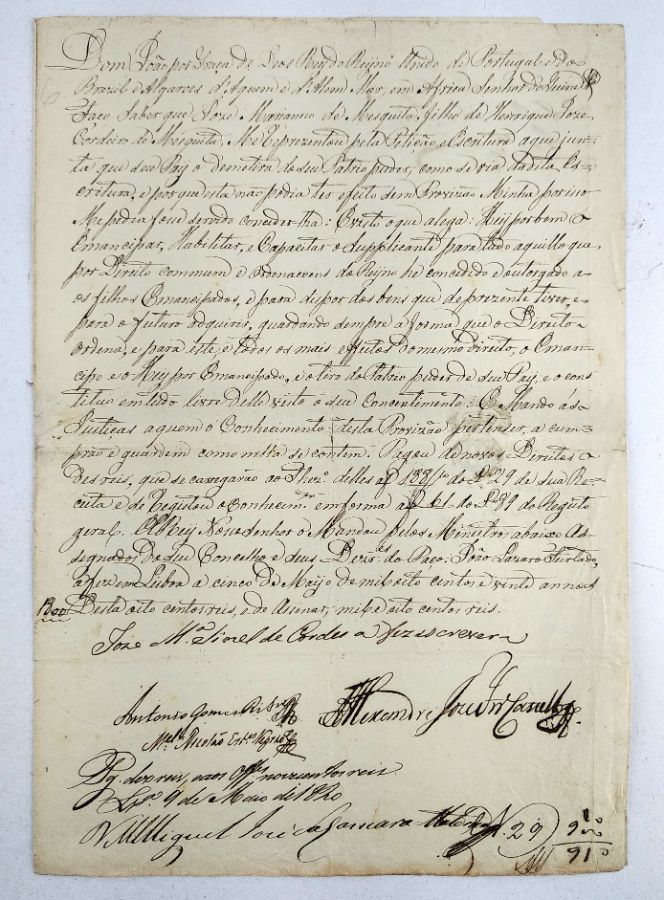 Dom João por Graça de Deos Rey do Reyno Unido de Portugal e do
Brazil e Algarves d'Aquem e d'Alem Mar, em Africa Senhor de Guiné &
Faço Saber que Joze Marianno de Mesquita, filho de Henrique Joze
Cordeiro de Mesquita, Me Reprezentou pela Petição e Escritura aqui jun=
ta que seu Pay o demetira do seu Patrio poder, como se via da dita Es=
critura, e porque esta não podia ter efeito sem Provizão Minha por isso
Me pedia fosse servido conceder lha: E visto o que alega: Hey por bem
Emancipar, Habilitar, e Capacitar o Supplicante para tudo aquillo que,
por Direito commum e Ordenacens do Reyno he concedido e outorgado a=
os filhos Emancipados, e para dispor dos bens que de prezente tiver, e
para o futuro adquirir, guardando sempre a forma que o Direito
ordena, e para este, e todos os mais effeitos do mesmo direito, o Eman=
cipo e o Hey por Emancipado, e o tiro do Patrio poder de seu Pay, e o cons
tituo em tudo livre delle visto o seu Concentimento: E Mando ás
Justiças aquem o Conhecimento desta Provizão pertenser, a cum=
prão e guardem como nella se contem. Pagou de novos Direitos
des reis, que se caregarão ao Thezº delles a f 188 do Lº 29 de sua Re=
ceita e se Registou o Conhecimto em forma a f 61 do Lº 89 do Registo
geral. ElRey Nosso Senhor o Mandou pelos Ministros abaixo As=
signados do seu Concelho e seus Dezres do Paço. João Lazaro Furtado
a fez em Lisboa a cinco de Maijo de mil oito centos e vinte annos
Desta oito centos reis, e de Asinar, mil e oito centos reis.
Joze Mª Sinel de Cordes a fez escrever
Antonio Gomes Ribrº
Alexandre Joze
Mel Nicoláo Esteves Negrão
Pg. dez reis, e aos Offes novecentos reis
Lxª 9 de Maio de 1820
Miguel José da Camara
29
910